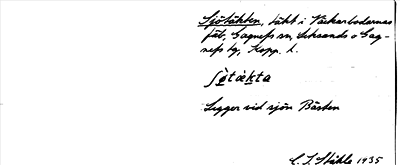 Sjötäkten, täkt i Näckarbodarnas
fäb, Gagnefs sn, Leksands o Gag-
nefs tg, Kopp. l.
ʃø̀tæ̀kta
Ligger vid sjön Bästen
C. I. Ståhle 1935